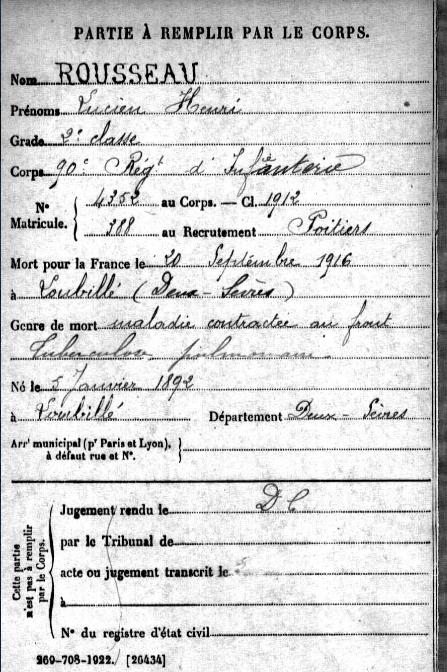 PARTIE À REMPLIR PAR LE CORPS.
Nom ROUSSEAU
Prénoms Lucien Henri
Grade 2e classe
Corps 90e Régt d'Infanterie
N° Matricule. { 4352 au Corps. — Cl. 1912
388 au Recrutement Poitiers
Mort pour la France le 20 Septembre 1916
à Loubillé (Deux-Sèvres)
Genre de mort maladie contractée au front
Tuberculose pulmonaire
Né le 5 Janvier 1892
à Loubillé Département Deux-Sèvres
Arrt municipal (pr Paris et Lyon), }
à défaut rue et N°.
Cette partie n'est pas à remplir par le Corps.
Jugement rendu le DC
par le Tribunal de
acte ou jugement transcrit le
à
N° du registre d'état civil
269-708-1922. [26434]